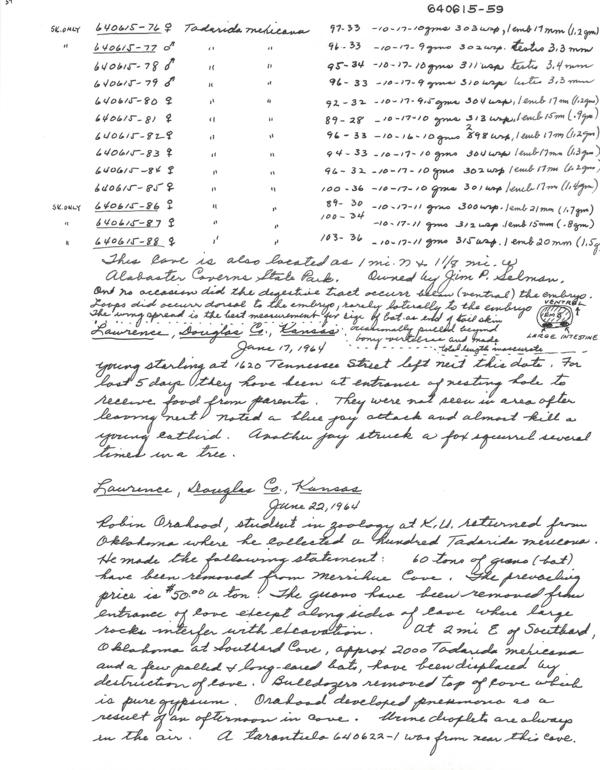 640615-59
SK. ONLY 640615-76 ♀ Tadarida mexicana 97-33 -10-17-10 gms 303 wsp, 1 emb 17 mm (1.2 gm)
" 640615-77 ♂ " " 96-33 -10-17-9 gms 302 wsp. testis 3.3 mm
640615-78 ♂ " " 95-34 -10-17-10 gms 311 wsp testis 3.4 mm
640615-79 ♂ " " 96-33 -10-17-9 gms 310 wsp testis 3.3 mm
640615-80 ♀ " " 92-32 -10-17-9.5 gms 304 wsp, 1 emb 17 m (1.2 gm)
640615-81 ♀ " " 89-28 -10-17-10 gms 313 wsp, 1 emb 15 m (.9 gm)
640615-82 ♀ " " 96-33 -10-16-10 gms 298 wsp, 1 emb 17 m (1.2 gm)
640615-83 ♀ " " 94-33 -10-17-10 gms 304 wsp 1 emb 17 ms (1.3 gm)
640615-84 ♀ " " 96-32 -10-17-10 gms 302 wsp 1 emb 17 m (1.2 gm)
640615-85 ♀ " " 100-36 -10-17-10 gms 301 wsp 1 emb 17 m (1.4 gm)
SK. ONLY 640615-86 ♀ " " 89-30 -10-17-11 gms 300 wsp. 1 emb 21 mm (1.7 gm)
" 640615-87 ♀ " " 100-34 -10-17-11 gms 312 wsp 1 emb 15 mm (.8 gm)
" 640615-88 ♀ " " 103-36 -10-17-11 gms 315 wsp. 1 emb 20 mm (1.5 g
This cave is also located as 1 mi. N & 1 1/8 mi. W
Alabaster Caverns State Park. Owned by Jim P. Selman.
On no occasion did the digestive tract occur below (ventral) the embryo.
Loops did occur dorsal to the embryo, rarely laterally to the embryo
VENTRAL
EMB
LARGE INTESTINE
The wing spread is the best measurement for size of bat as end of tail skin
occasionally pulled beyond
bony vertebrae and made
total length inaccurate
Lawrence, Douglas Co., Kansas
June 17, 1964
young starling at 1620 Tennessee Street left nest this date. For
last 5 days they have been at entrance of nesting hole to
receive food from parents. They were not seen in area after
leaving nest. I noted a blue jay attack and almost kill a
young catbird. Another jay struck a fox squirrel several
times in a tree.
Lawrence, Douglas Co., Kansas
June 22, 1964
Robin Orahood, student in zoology at K.U. returned from
Oklahoma where he collected a hundred Tadarida mexicana.
He made the following statement: 60 tons of guano (bat)
have been removed from Merrihue Cave. The prevailing
price is $50.00 a ton. The guano have been removed from
entrance of cave except along sides of cave where large
rocks interfer with excavation. At 2 mi E of Southard,
Oklahoma at Southard Cave, approx 2000 Tadarida mexicana
and a few pallid & long-eared bats, have been displaced by
destruction of cave. Bulldozers removed top of cave which
is pure gypsum. Orahood developed pneumonia as a
result of an afternoon in cave. Urine droplets are always
in the air. A tarantula 640622-1 was from near this cave.